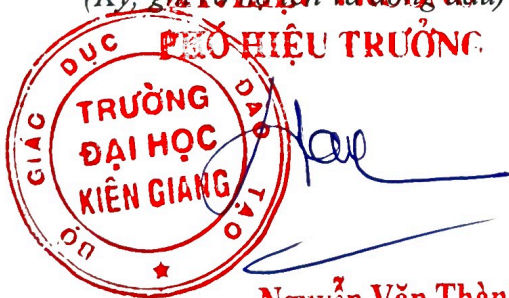 (Ký, ghi rõ họ tên và đóng dấu)
PHÓ HIỆU TRƯỞNG
BỘ GIÁO DỤC ĐÀO TẠO
TRƯỜNG
ĐẠI HỌC
KIÊN GIANG
Nguyễn Văn Thàn